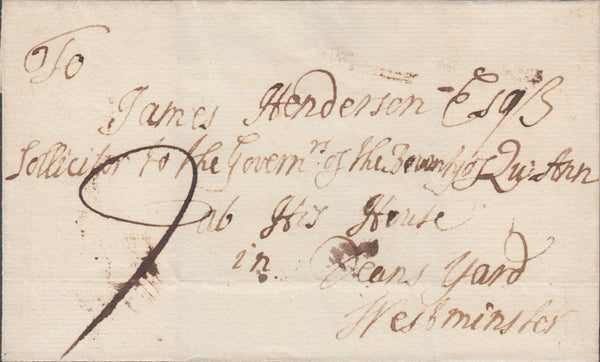 To
James Henderson Esqr
Sollicitor to the Governrs of the Bounty of Qu: Ann
at His House
in Deans Yard
Westminster